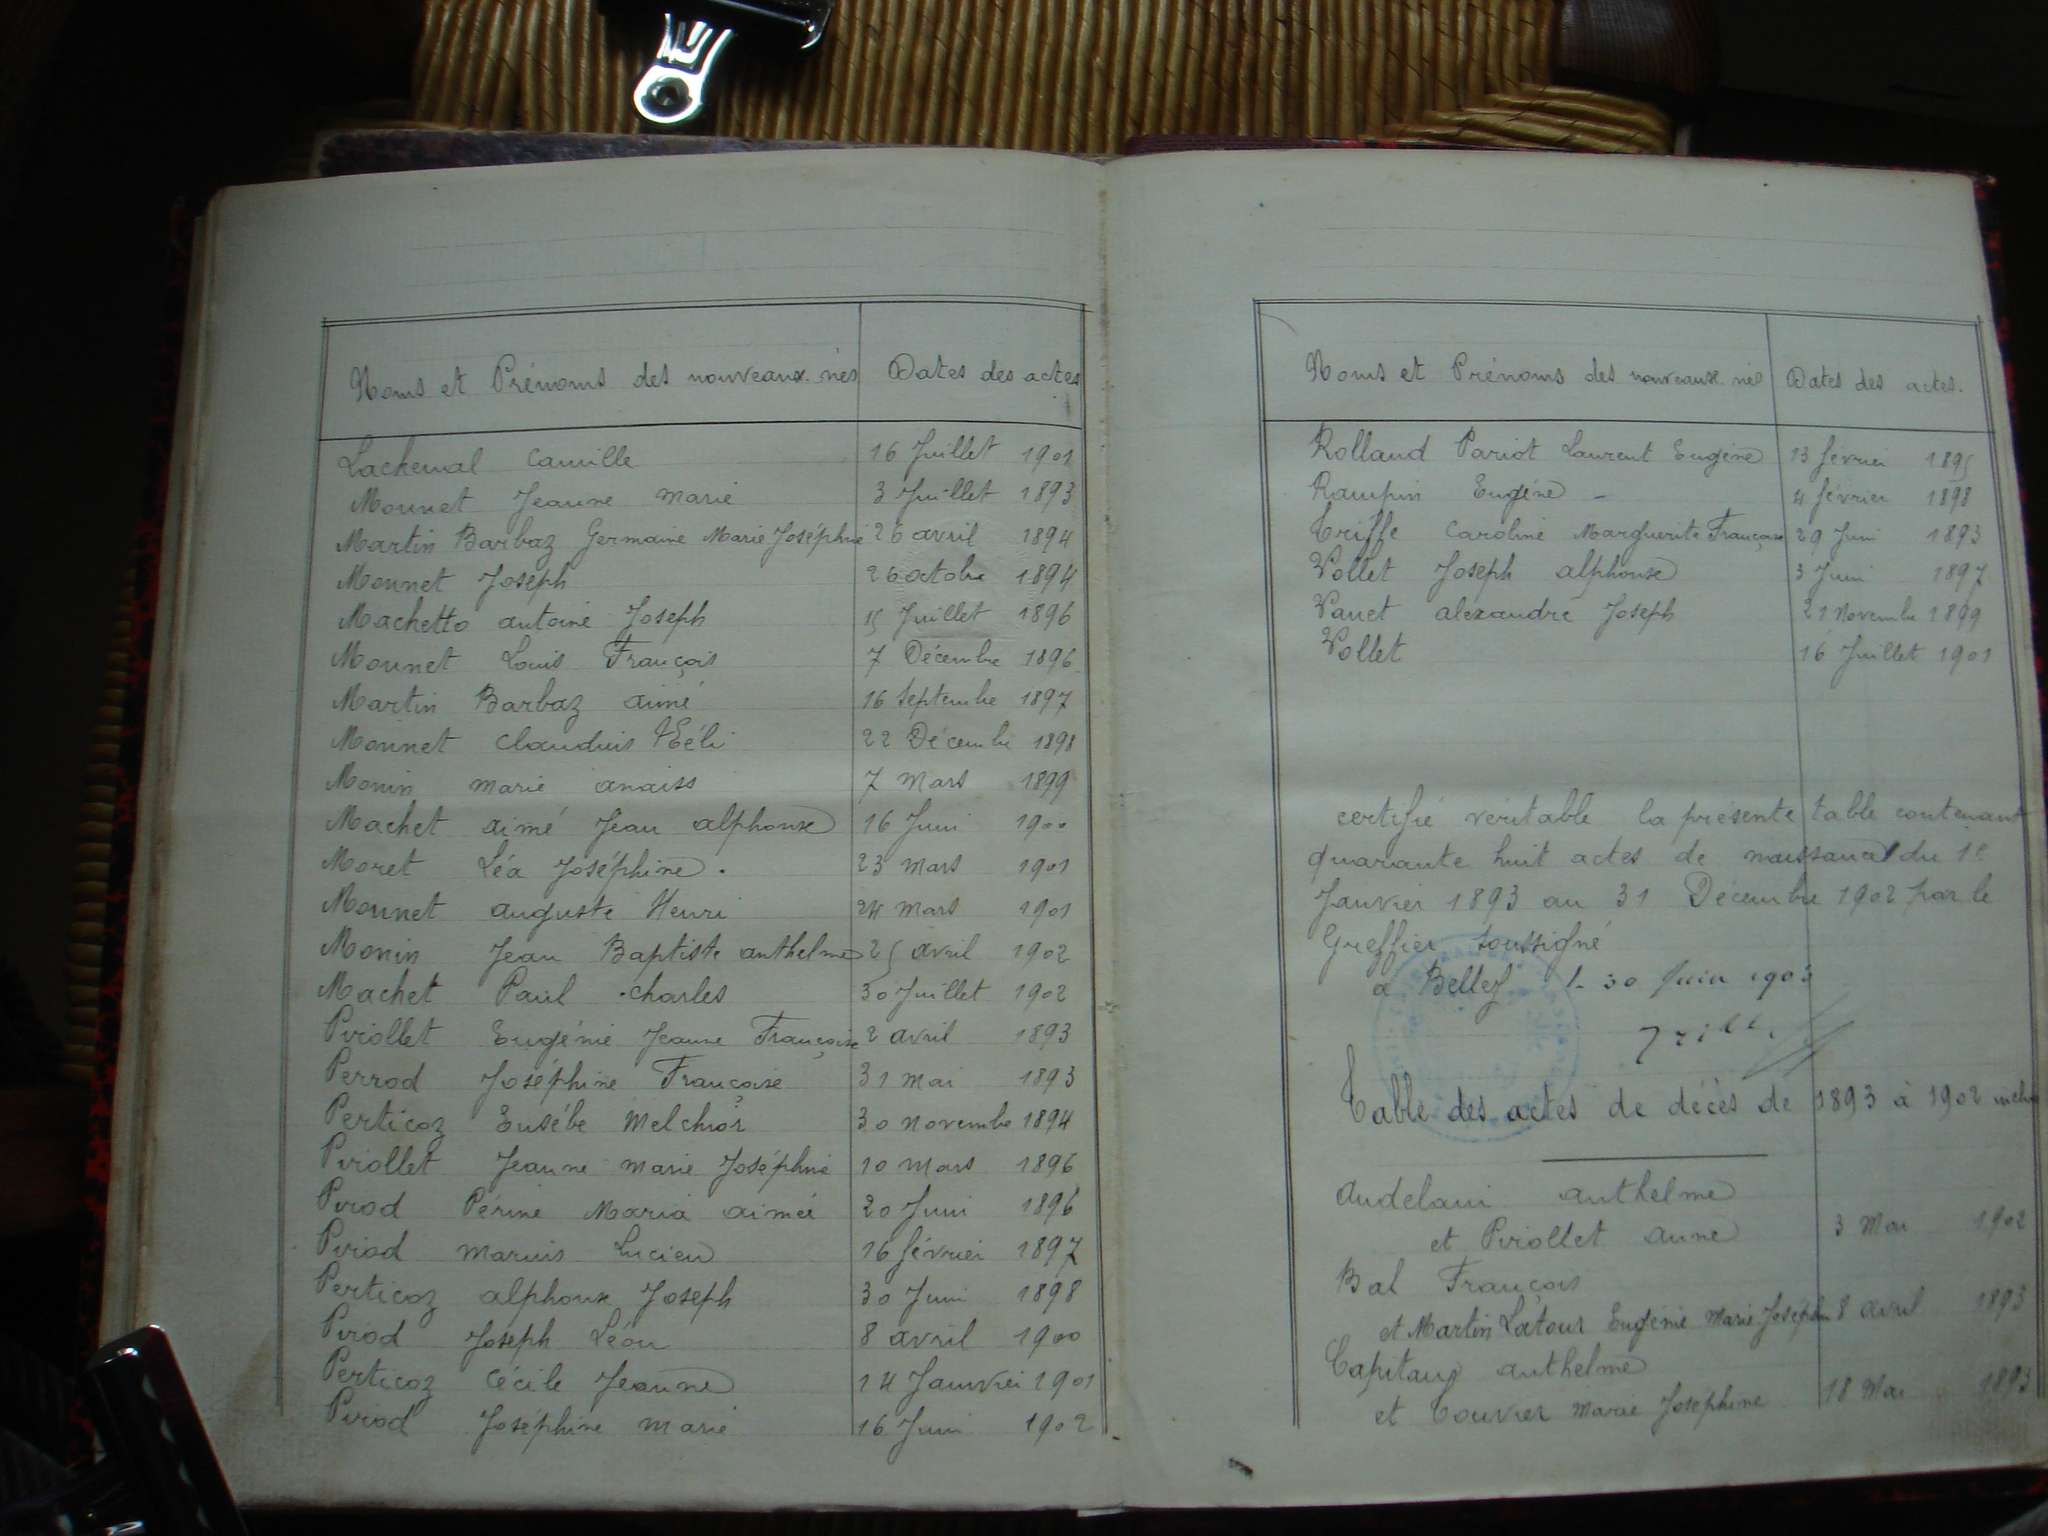 Noms et Prénoms des nouveaux-nés Dates des actes
Lachenal Camille 16 Juillet 1901
Monnet Jeanne Marie 3 Juillet 1893
Martin Barbaz Germaine Marie Joséphine 26 avril 1894
Monnet Joseph 26 octobre 1894
Machetto antoine Joseph 15 Juillet 1896
Monnet Louis François 7 Décembre 1896
Martin Barbaz aimé 16 Septembre 1897
Monnet Claudius 22 Décembre 1898
Monin Marie anaiss 7 Mars 1899
Machet aimé Jean alphonse 16 Juin 1900
Moret Léa Joséphine. 23 Mars 1901
Monnet auguste Henri 24 Mars 1901
Monin Jean Baptiste anthelme 25 avril 1902
Machet Paul Charles 30 Juillet 1902
Piriollet Eugénie Jeanne Françoise 2 avril 1893
Perrod Joséphine Françoise 31 Mai 1893
Perticoz Eusébe Melchior 30 Novembre 1894
Piriollet Jeanne Marie Joséphine 10 Mars 1896
Piriod Périne Maria aimée 20 Juin 1896
Piriod Marius Lucien 16 février 1897
Perticoz alphonse Joseph 30 Juin 1898
Piriod Joseph Léon 8 avril 1900
Perticoz Cécile Jeanne 14 Janvier 1901
Piriod Joséphine Marie 16 Juin 1902
Noms et Prénoms des nouveaux-nés Dates des actes.
Rolland Pariot Laurent Eugène 13 février 1895
Rampin Eugéne - 4 février 1898
Triffe Caroline Marguerite Françoise 29 Juin 1893
Vollet Joseph alphonse 3 Juin 1897
Vanet alexandre Joseph 21 Novembre 1899
Vollet 16 Juillet 1901
certifié véritable la présente table contenant
quarante huit actes de naissance du 1er
Janvier 1893 au 31 Décembre 1902 par le
Greffier soussigné
a Belley le 30 Juin 1903
Table des actes de décès de 1893 à 1902 inclus
anthelme
et Piriollet anne 3 Mai 1902
Bal François
et Martin Latour Eugénie Marie Joséphine 8 avril 1893
Capitaux anthelme
et Touvier Marie Joséphine 18 Mai 1893